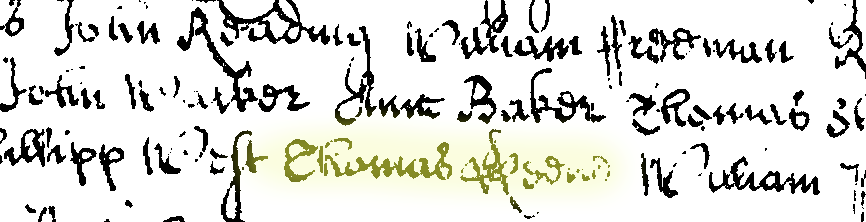 John Reading William ffreeman
John Walker Anne Baker Thomas
West Thomas William